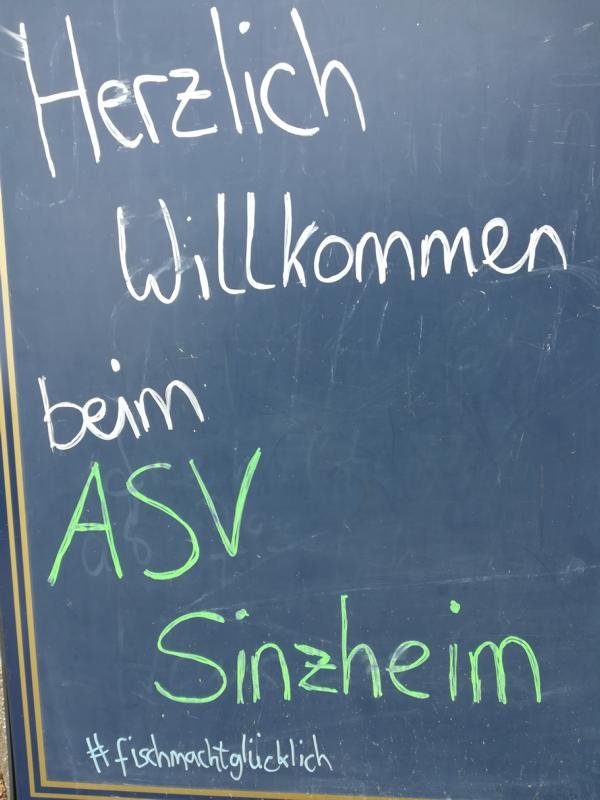 Herzlich
Willkommen
beim
ASV
Sinzheim
#fischmachtglücklich